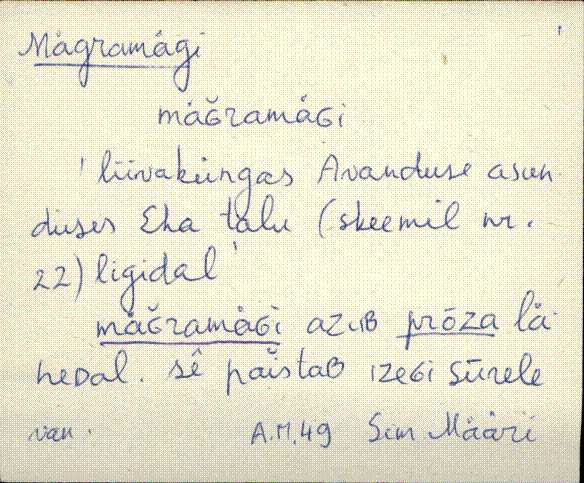 Mägramägi
mäɢ̆ramäɢi
'liivaküngas Avanduse asun-
duses Eha talu (skeemil nr.
22) ligidal'
mäɢ̆ramäɢi azuʙ prōza lä-
heᴅal. sê paĭstaʙ ızeɢi Sūrele
A.M.49 Sim Määri